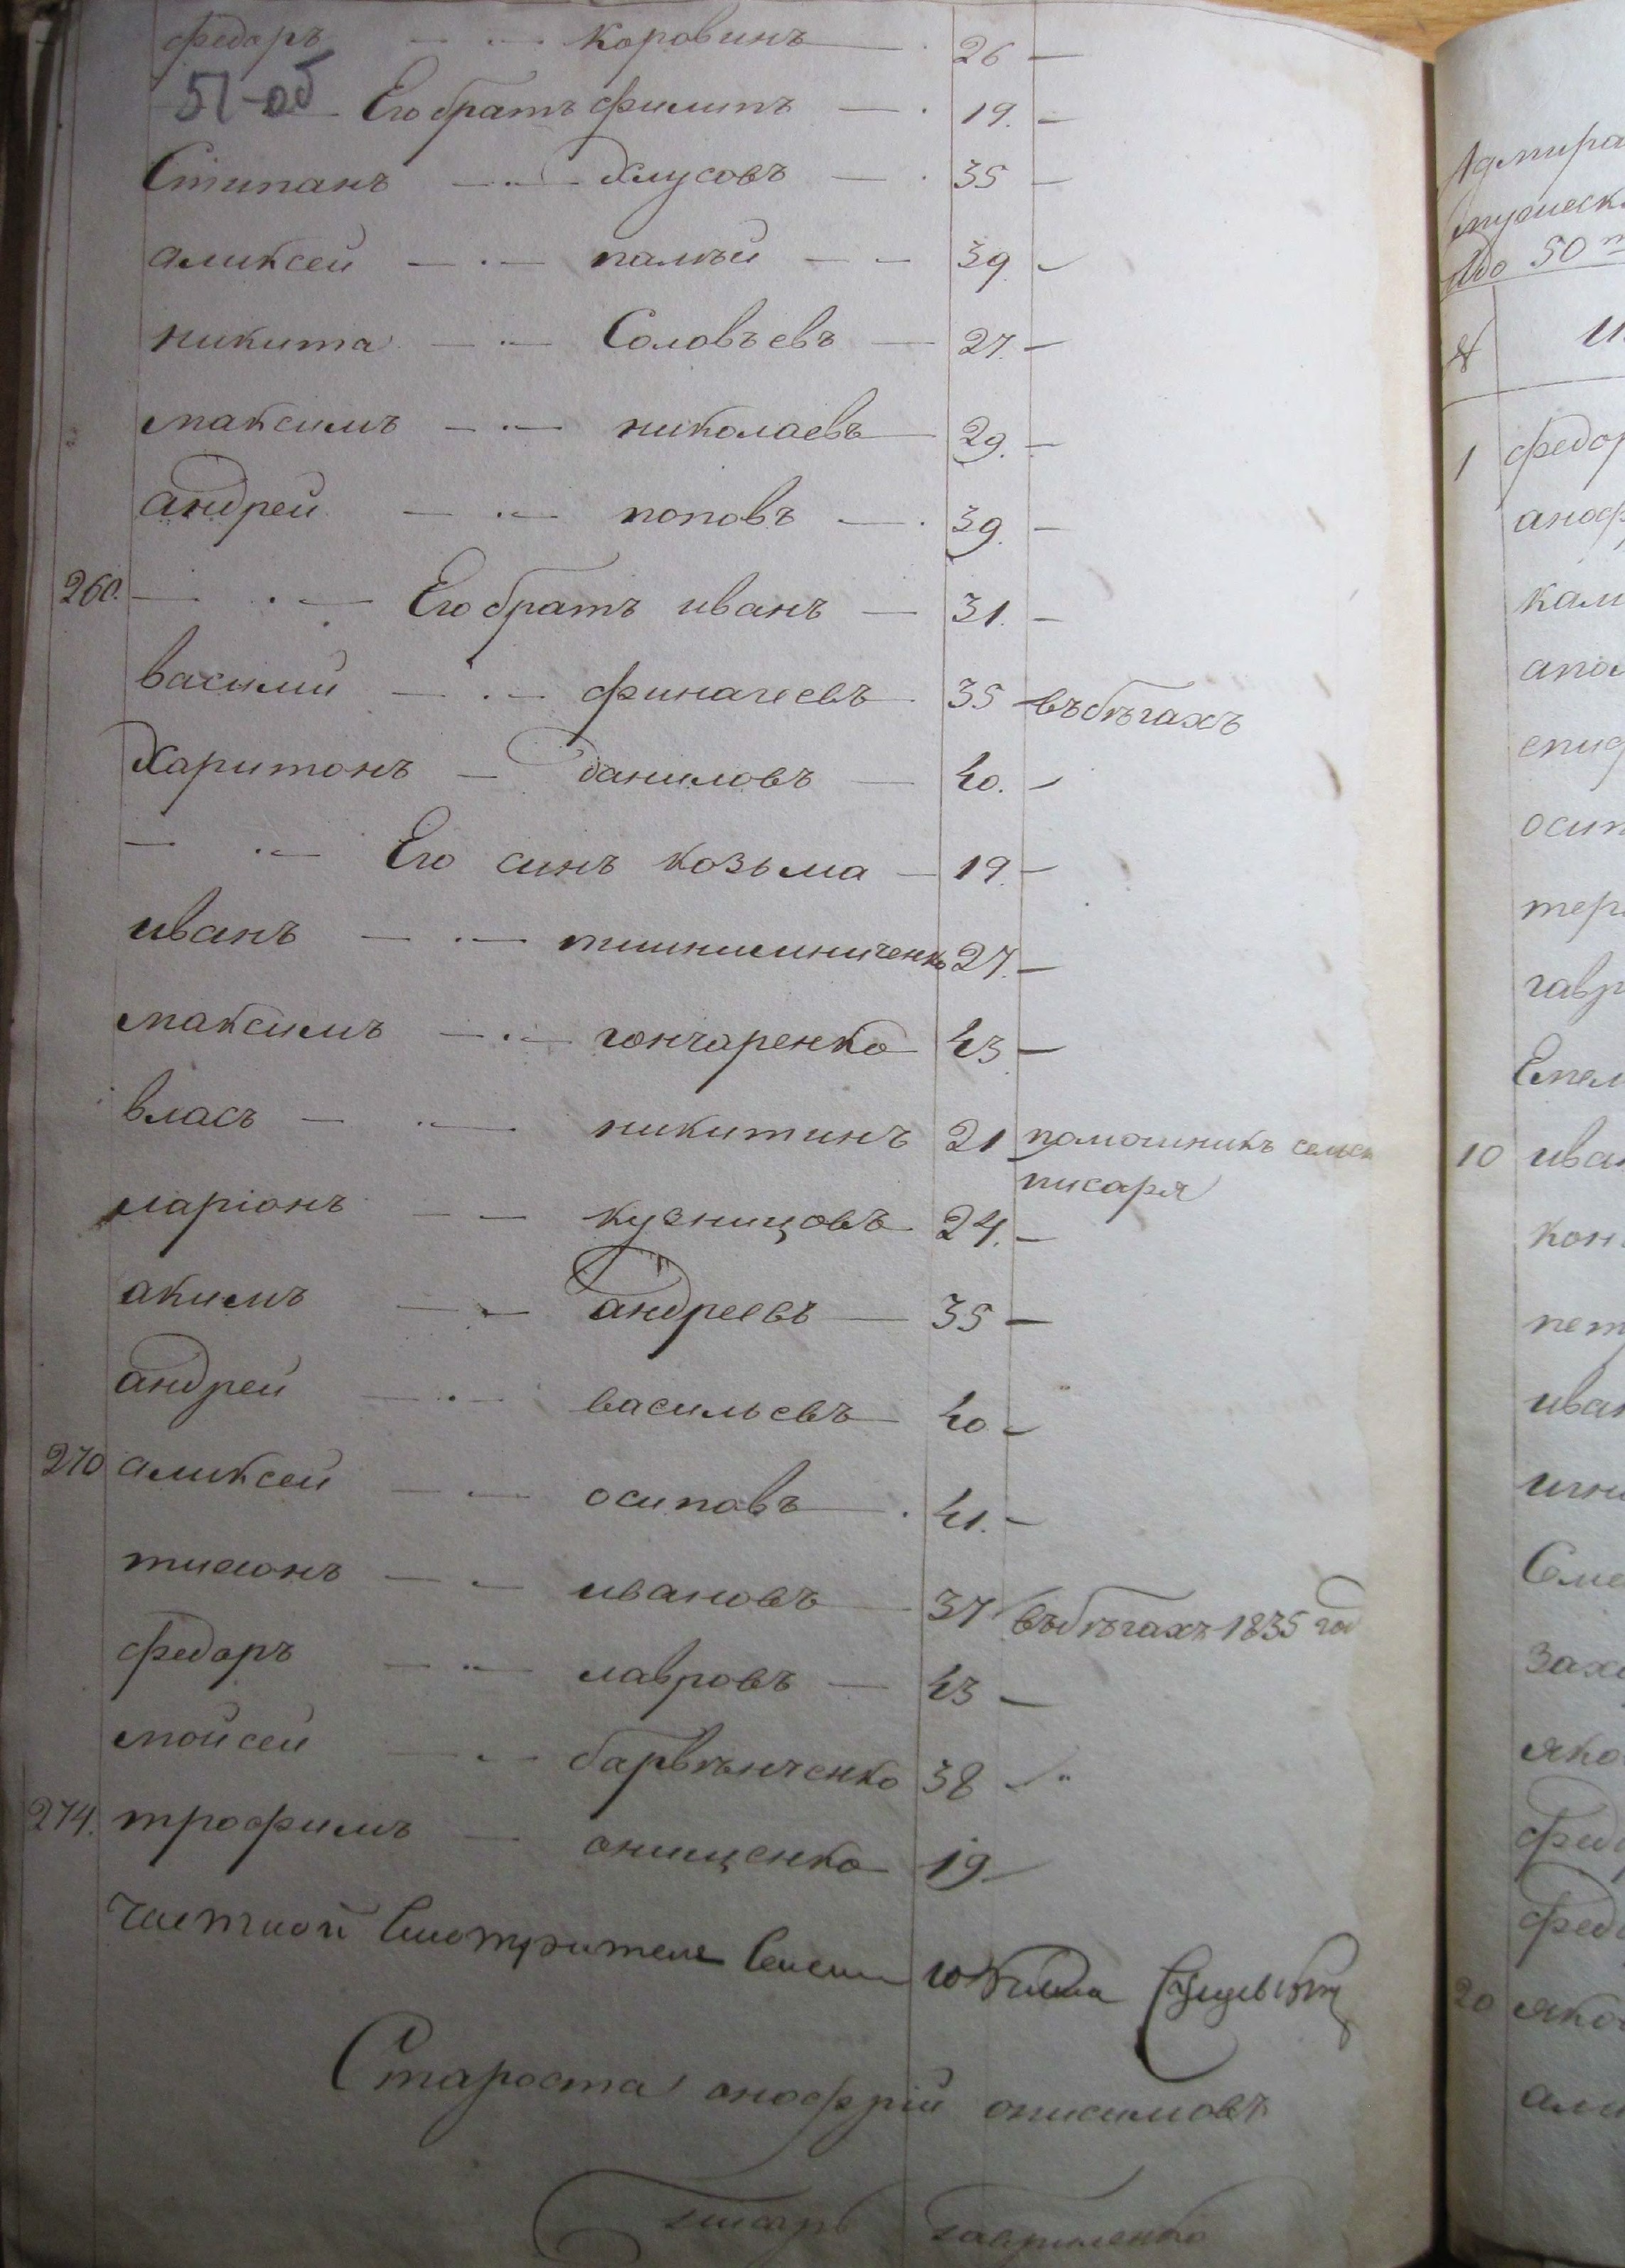 федоръ — коровинъ — 26 —
51-об Его братъ филипъ — 19. —
Стипанъ — Хлусовъ — 35 —
аликсей — палъй — 39 —
никита — Соловъевъ — 27. —
максимъ — николаевъ — 29. —
андрей — поповъ — 39. —
260. — Его братъ иванъ — 31. —
василий — финагеевъ 35 въ бѣгахъ
Харитонъ — даниловъ — 40. —
— Его синъ козьма — 19. —
иванъ — 27. —
максимъ — гончаренко 43 —
власъ — никитинъ 21 помошникъ сельск
писаря
ларіонъ — кузницовъ 24. —
акимъ — андреевъ — 35 —
андрей — васильевъ — 40 —
270 аликсей — осиповъ — 41. —
тихонъ — ивановъ — 37 въ бѣгахъ 1835 год
федоръ — лавровъ — 43 —
мойсей — барвѣнченко 38 —
274. трофимъ — онищенко 19 —
частной Смотритель
Староста онофрій онисимовъ
писарь гавриленко
Адмира
до 50
№ И
1 федор
аноф
кам
апол
епиф
осип
тере
гавр
Емел
10 иван
кон
пет
иван
игн
Семе
заха
яко
фед
фед
20 яко
али